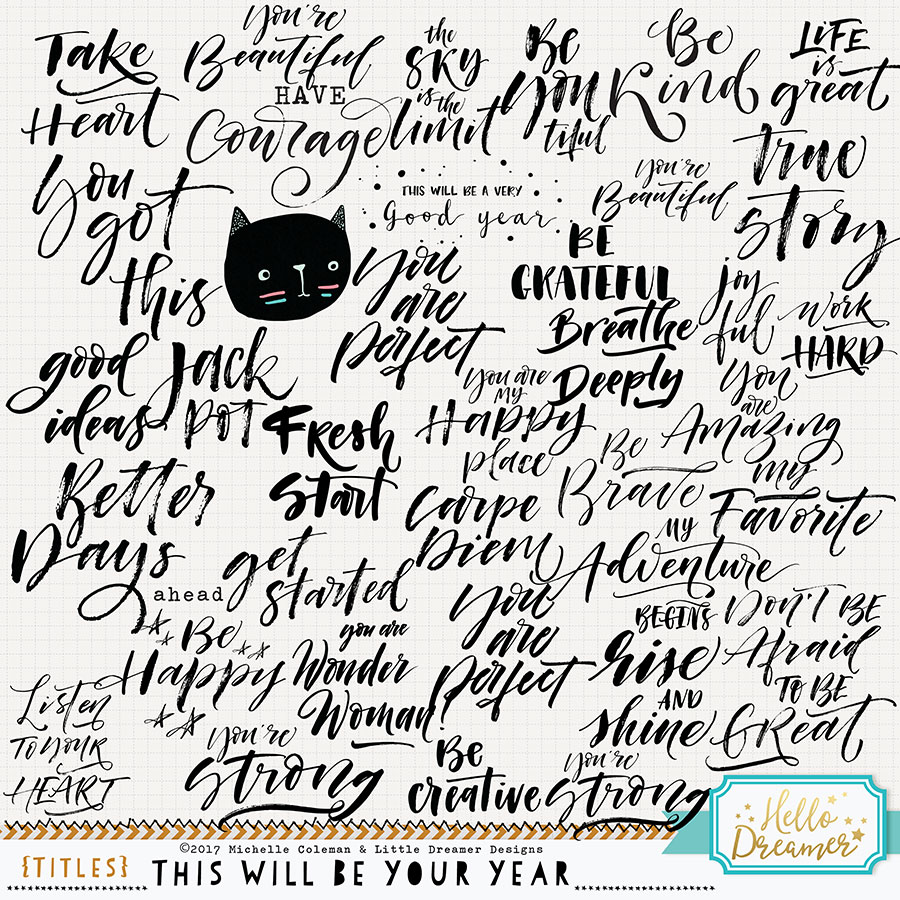 Take
Heart
You're
Beautiful
HAVE
Courage
the
SKY
is the
limit
Be
You
tiful
Be
Kind
LiFE
is
great
You
got
this
THIS WILL BE A VERY
Good year
You're
Beautiful
true
story
You
are
perfect
BE
GRATEFUL
Breathe
Deeply
joy
ful
work
HARD
good
ideas
Jack
POT
Fresh
Start
You are
MY
Happy
place
You
are
Amazing
Be
Brave
my
Favorite
Better
Days
ahead
get
started
Carpe
Diem
MY
Adventure
BEGINS
You
are
perfect
DON'T BE
Afraid
TO BE
GREAT
Be
Happy
you are
Wonder
Woman!
rise
AND
shine
Listen
TO YOUR
HEART
You're
Strong
Be
creative
You're
Strong
Hello
Dreamer
©2017 Michelle Coleman & Little Dreamer Designs
{TITLES} THIS WILL BE YOUR YEAR